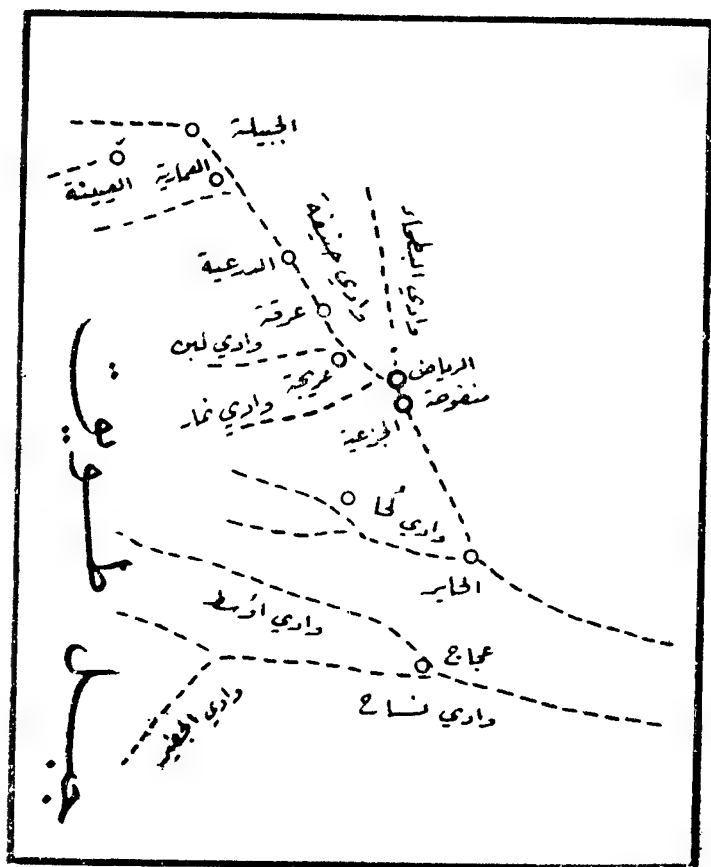 الجبيلة
العمارية
العيينة
وادي حنيفة
وادي البطحاء
الدرعية
عرقة
وادي لبن
عريجة
الرياض
منفوحة
وادي نمار
الجزعية
وادي لحا
الحاير
وادي أوسط
عجاج
وادي نساح
جبل طويق